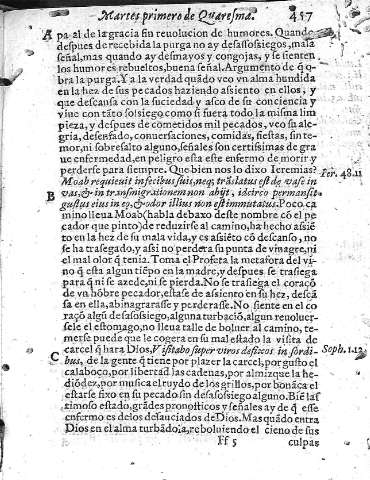 Martes primero de Quaresma. 457
A pa al de la gracia sin reuolucion de humores. Quando
despues de recebida la purga no ay desassossiegos, mala
señal, mas quando ay desmayos y congojas, y se sienten
los humores rebueltos, buena señal. Argumento de q̃ o-
bra la purga. Y a la verdad quãdo veo vn alma hundida
en la hez de sus pecados haziendo assiento en ellos, y
que descansa con la suciedad y asco de su conciencia y
viue con tãto sossiego como si fuera todo la misma lim
pieza, y despues de cometidos mil pecados, veo su ale-
gria, desenfado, conuersaciones, comidas, fiestas, sin te-
mor, ni sobresalto alguno, señales son certissimas de gra
ue enfermedad, en peligro esta este enfermo de morir y
perderse para siempre. Que bien nos lo dixo Ieremias? Ier. 48.11
Moab requieuit in fecibus suis, neq; trãslatus est de vase in
B vas, & in transmigrationem non abijt, idcirco permansit
gustus eius in eo, & odor illius non est immutatus. Poco ca
mino lleua Moab (habla debaxo deste nombre cõ el pe
cador que pinto) de reduzirse al camino, ha hecho assiẽ
to en la hez de su mala vida, y es assiẽto cõ descanso, no
se ha trasegado, y assi no perdera su punta de vinagre, ni
el mal olor q̃ tenia. Toma el Profera la metafora del vi-
no q̃ esta algun tiẽpo en la madre, y despues se trasiega
para q̃ ni se azede, ni se pierda. No se trasiega el coraçõ
de vn hõbre pecador, estase de assiento en su hez, descã
sa en ella, abinagrarse y perderasse. No siente en el co
raçõ algũ desassosiego, alguna turbaciõ, algun reuoluer-
sele el estomago, no lleua talle de boluer al camino, te-
merse puede que le cogera en su mal estado la visita de
carcel q̃ hara Dios, Visitabo super viros defixos in sordi- Soph. 1.12.
C bus, de la gente q̃ tiene por plazer la carcel, por gusto el
calaboço, por libertad las cadenas, por almizque la he-
diõdez, por musica el ruydo de los grillos, por bonãca el
estarse fixo en su pecado sin desassosiego alguno. Biẽ las
timoso estado, grãdes pronosticos y señales ay de q̃ esse
enfermo es de los desauciados de Dios. Mas quãdo entra
Dios en el alma turbãdola, reboluiendo el cieno de sus
Ff 5 culpas